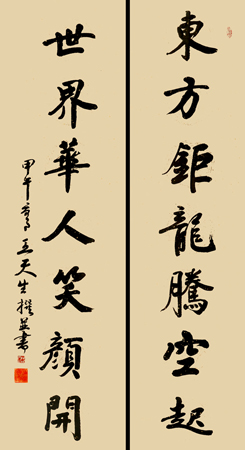 東方鉅龍騰空起
世界華人笑顏開
甲午春月王天生撰并書